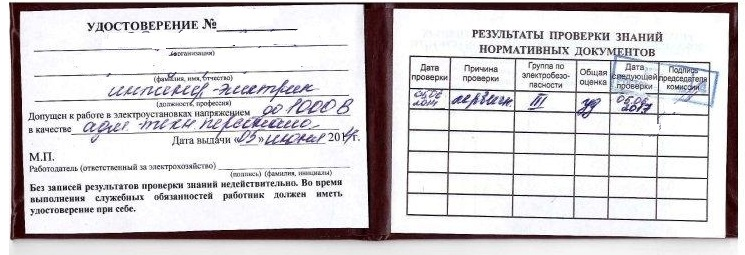 УДОСТОВЕРЕНИЕ №
(организация)
(фамилия, имя, отчество)
инженер-электрик
(должность, профессия)
Допущен к работе в электроустановках напряжением до 1000 В
в качестве адм. техн. персонала
Дата выдачи «05» июня 2014г.
М.П.
Работодатель (ответственный за электрохозяйство)
(подпись) (фамилия, инициалы)
Без записей результатов проверки знаний недействительно. Во время
выполнения служебных обязанностей работник должен иметь
удостоверение при себе.
РЕЗУЛЬТАТЫ ПРОВЕРКИ ЗНАНИЙ
НОРМАТИВНЫХ ДОКУМЕНТОВ
Дата проверки Причина проверки Группа по электробезо-пасности Общая оценка Дата следующей проверки Подпись председателя комиссии
05.06 2014 первичн. III уд 05.06